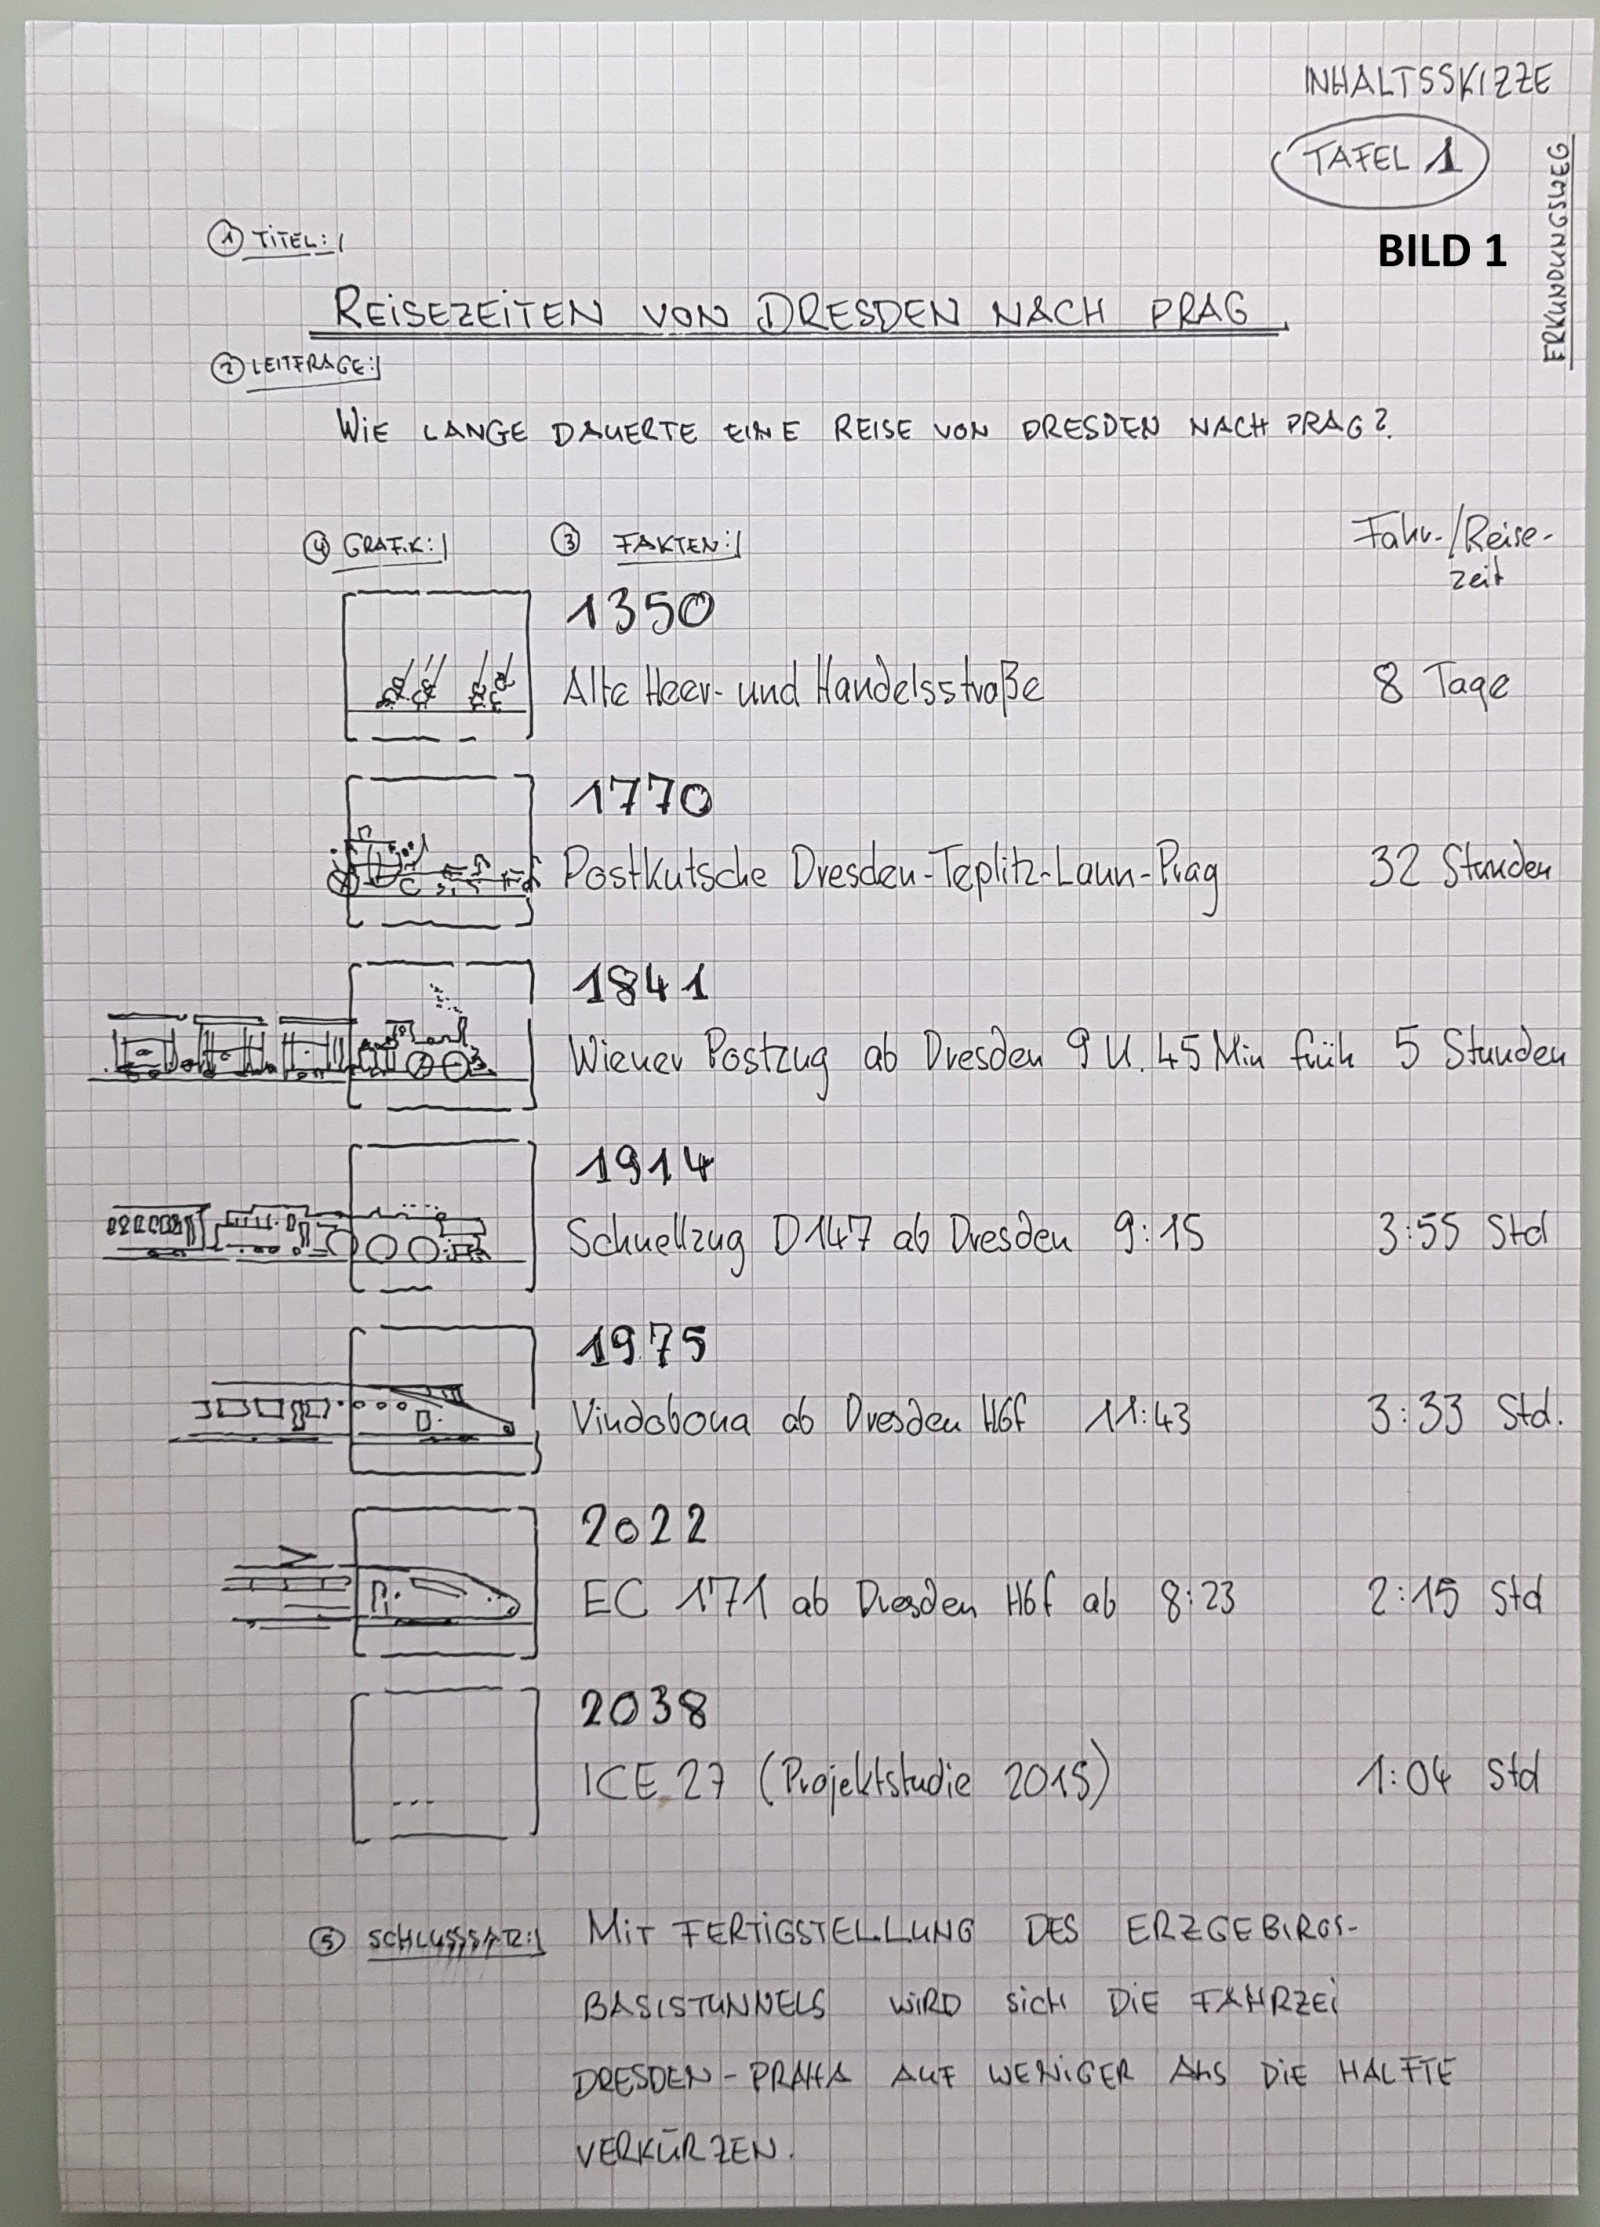 INHALTSSKIZZE
TAFEL 1
ERKUNDUNGSWEG
BILD 1
① TITEL:
REISEZEITEN VON DRESDEN NACH PRAG
② LEITFRAGE:
WIE LANGE DAUERTE EINE REISE VON DRESDEN NACH PRAG?
④ GRAFIK: ③ FAKTEN: Fahr-/Reise-
zeit
1350
Alte Heer- und Handelsstraße 8 Tage
1770
Postkutsche Dresden-Teplitz-Laun-Prag 32 Stunden
1841
Wiener Postzug ab Dresden 9 U. 45 Min früh 5 Stunden
1914
Schnellzug D147 ab Dresden 9:15 3:55 Std
1975
Vindobona ab Dresden Hbf 11:43 3:33 Std.
2022
EC 171 ab Dresden Hbf ab 8:23 2:15 Std
2038
ICE 27 (Projektstudie 2015) 1:04 Std
...
⑤ SCHLUSSSATZ: MIT FERTIGSTELLUNG DES ERZGEBIRGS-
BASISTUNNELS WIRD SICH DIE FAHRZEI
DRESDEN-PRAHA AUF WENIGER ALS DIE HALFTE
VERKÜRZEN.